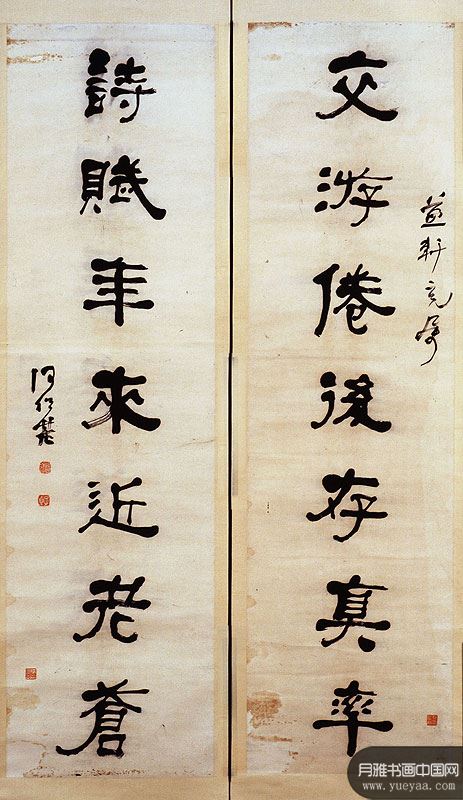 交游倦後存真率
詩賦年來近老蒼
月雅书画中国网
www.yueyaa.com